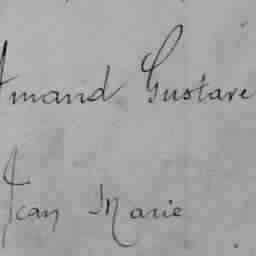 Amand Gustave
Jean Marie